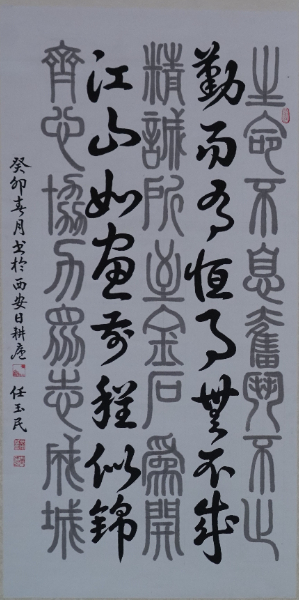 生命不息奮鬥不止
勤而有恒事無不成
精誠所至金石為開
江山如畫前程似錦
齊心協力眾志成城
癸卯春月书於西安日耕庵
任玉民